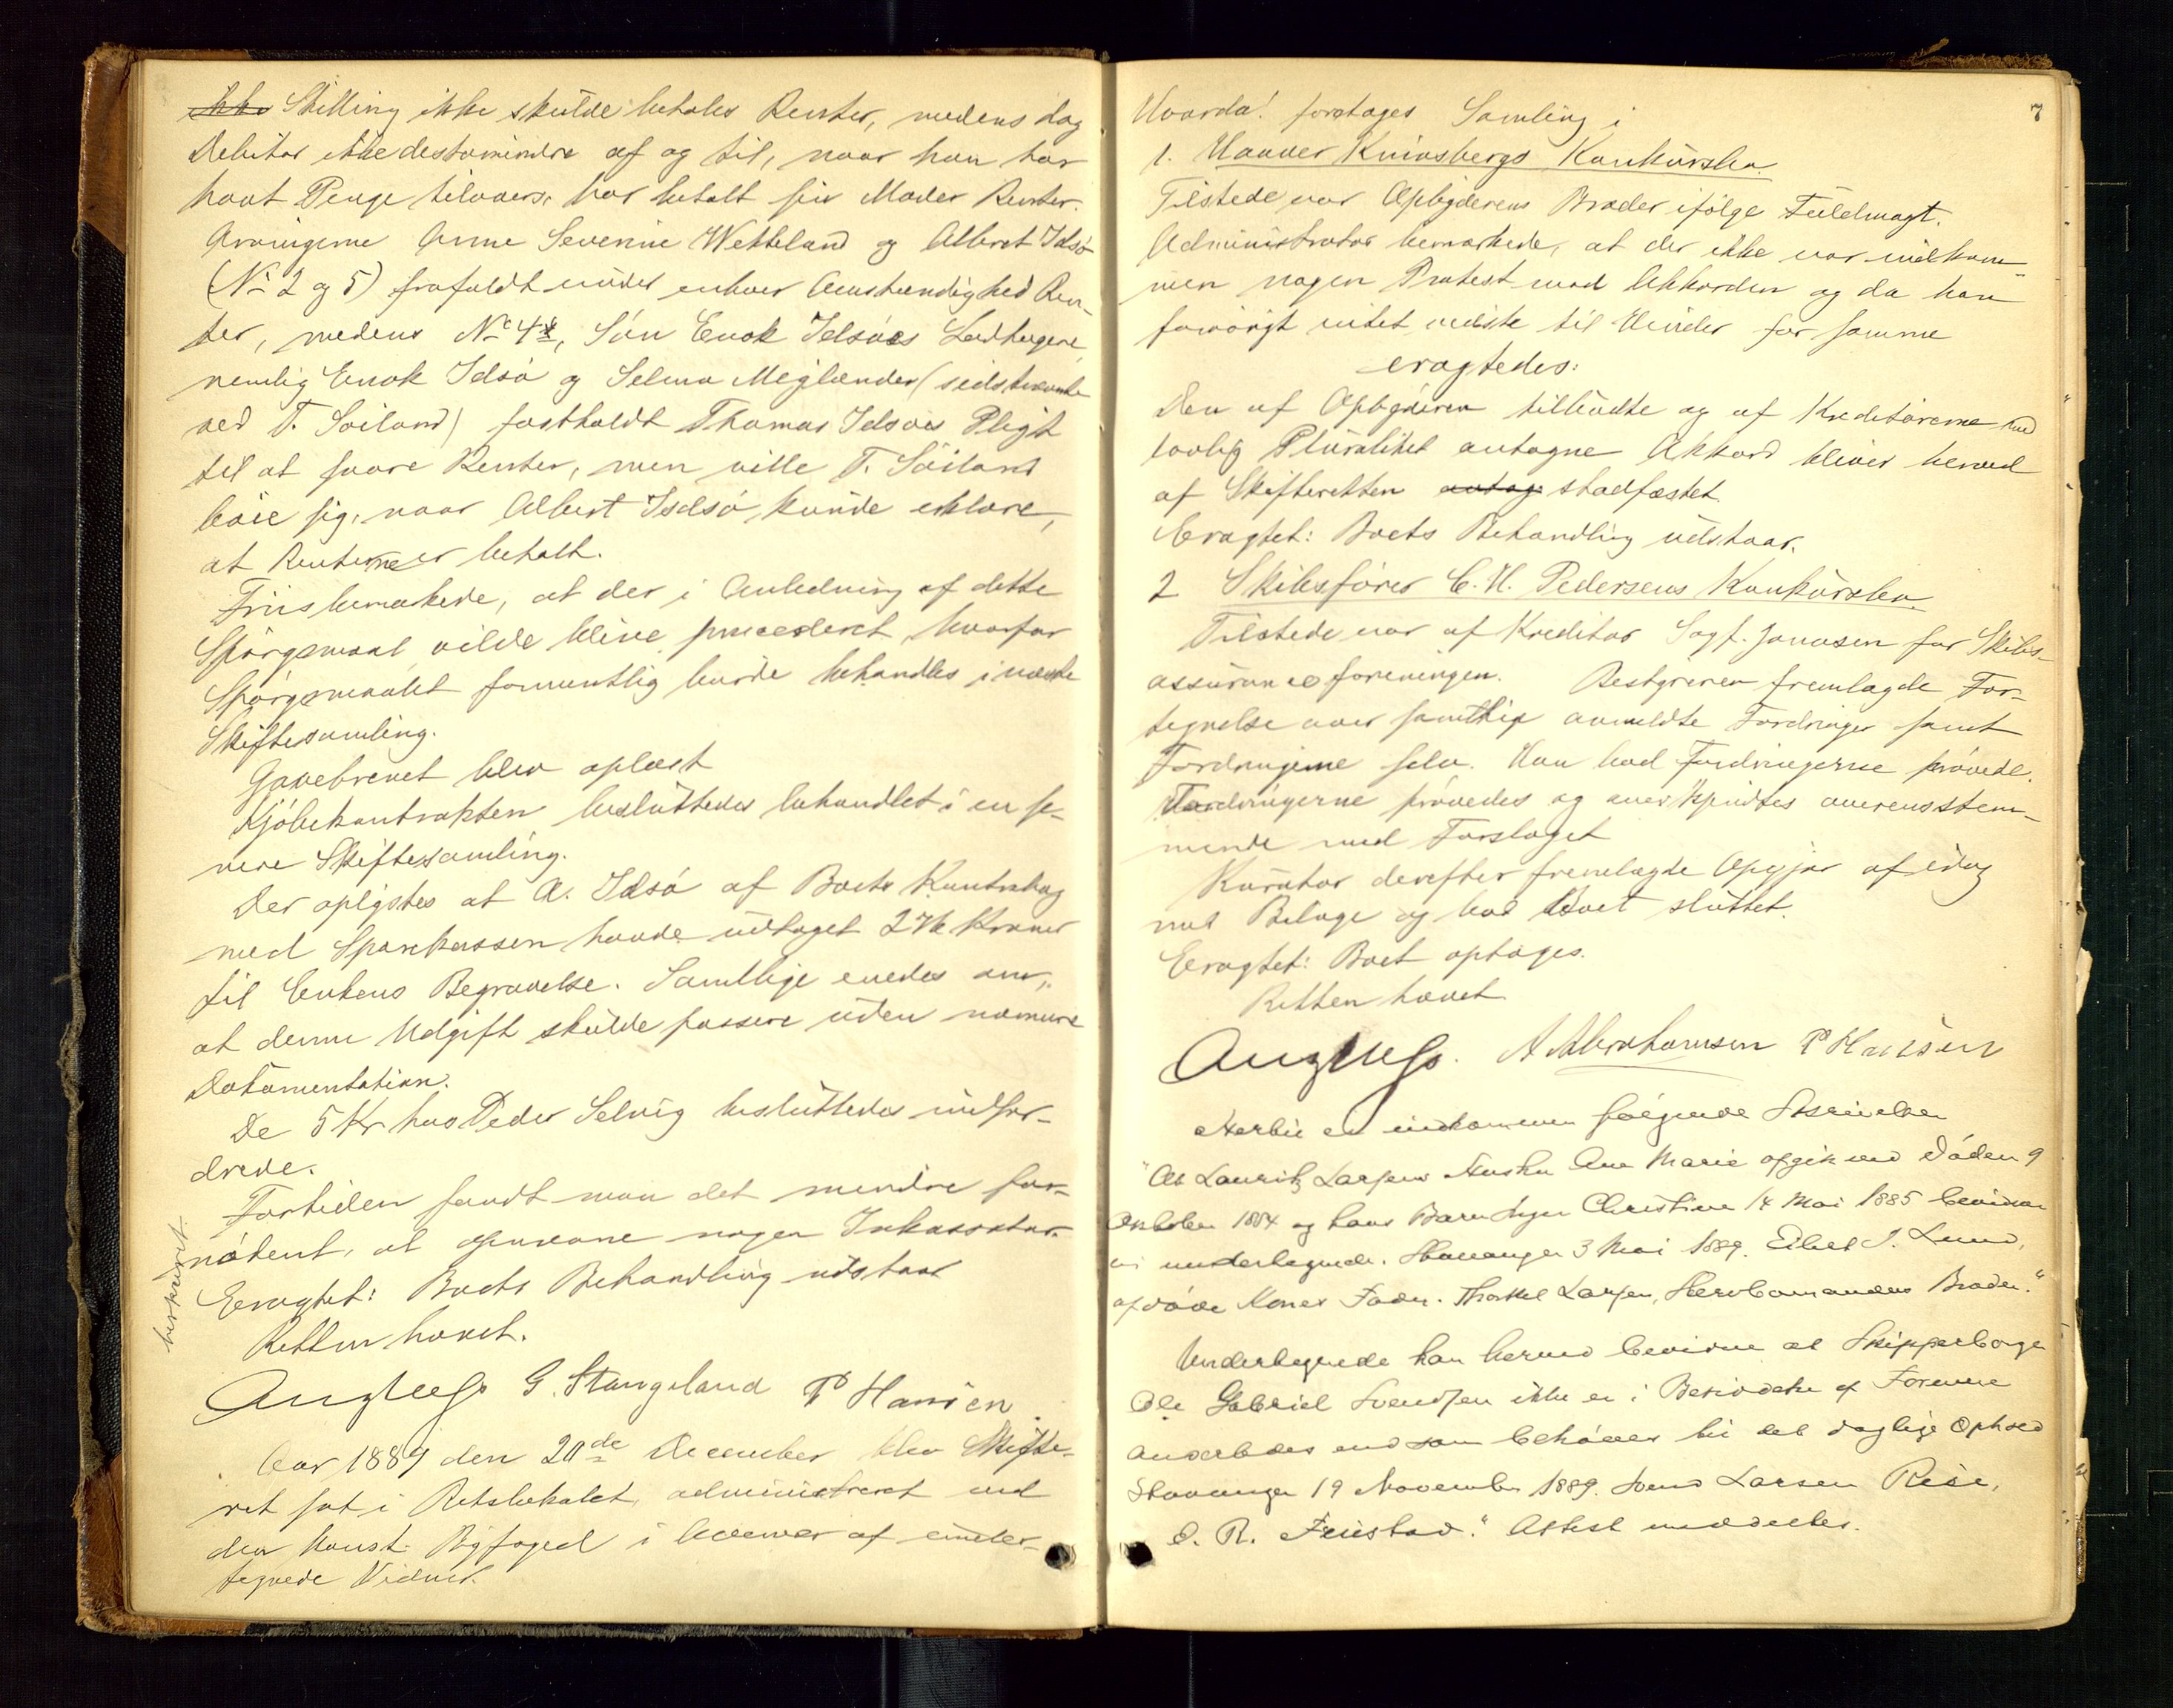 ikke Stilling ikke skulde betales Renter, medens dog
Debitor ikke destomindre af og til, naar han har
havt Penge tilovers, har betalt sin Moder Renter.
Arvingerne Anne Severine Wetteland og Albert Idsö
(No 2 og 5) frafaldt under enhver Omstændighed Ren-
ter, medens No 4, Sön Enok Idsöes Ledtagere
nemlig Enok Idsö og Selma Meglænder (sidstnævnte
ved T. Söiland) fastholdt Thomas Idsöes Pligt
til at svare Renter, men ville T. Söiland
böie sig, naar Albert Idsö kunde erklære,
at Renterne er betalt.
Friis bemærkede, at der i Anledning af dette
Spörgsmaal vilde blive procederet, hvorfor
Spörgsmaalet formentlig burde behandles i næste
Skiftesamling.
Gavebrevet blev oplæst
Kjöbekontrakten besluttedes behandlet i en se-
nere Skiftesamling.
Der oplystes at A. Idsö af Boets Kontrabog
med Sparekassen havde udtaget 276 Kroner
til Enkens Begravelse. Samtlige enedes om,
at denne Udgift skulde passere uden nærmere
Dokumentation.
De 5 Kr hos Peder Selvig besluttedes indfor-
drede.
Fortiden fandt man det mindre for-
nödent, at opnævne nogen Inkassator.
Eragtet: Boets Behandling udstaar
Retten hævet.
G. Stangeland P Hansen
Aar 1889 den 20de December blev Skifte-
ret sat i Retslokalet, administreret ved
den konst. Byfoged i Overvær af under-
tegnede Vidner.
7
Hvorda! foretages Samling i
1. Kninsbergs Konkursbo.
Tilstede var Opbyderens Broder ifölge Fuldmagt.
Administrator bemærkede, at der ikke var indkom-
men nogen Protest mod Akkorden og da han
forövrigt intet vidste til Hinder for samme
eragtedes:
Den af Opbyderen tilbudte og af Kreditorerne med
lovlig Pluralitet antagne Akkord bliver herved
af Skifteretten antag stadfæstet.
Eragtet: Boets Behandling udstaar.
2 Skibsförer C. H. Pedersens Konkursbo.
Tilstede var af Kreditor Sagf. Janusen for Skibs-
assuranceforeningen. Bestyreren fremlagde For-
tegnelse over samtlige anmeldte Fordringer samt
Fordringerne selv. Han bad Fordringerne prövede.
Fordringerne prövedes og anerkjendtes overensstem-
mende med Forslaget
Kurator derefter fremlagde Opgjör af idag
med Bilage og bad Boet sluttet.
Eragtet: Boet optages.
Retten hævet
A Abrahamsen P Hansen
Herbie er indkommen fölgende Skrivelser
"At Lauritz Larsens Hustru Ane Marie afgik ved Döden 9
Oktober 1884 og hans Barn Christine 14 Mai 1885 bevidner
vi undertegnede. Stavanger 3 Mai 1889. Eilert I. Lund,
afdöde Kones Fader. Thorkel Larsen, Stervbomandens Broder."
Undertegnede kan herved bevidne at Skipperborger
Ole Gabriel Svendsen ikke er i Besiddelse af Formue
anderledes end som behöves til det daglige Ophold
Stavanger 19 November 1889. Svend Larsen Risa,
O. R. Attest meddeeltes.